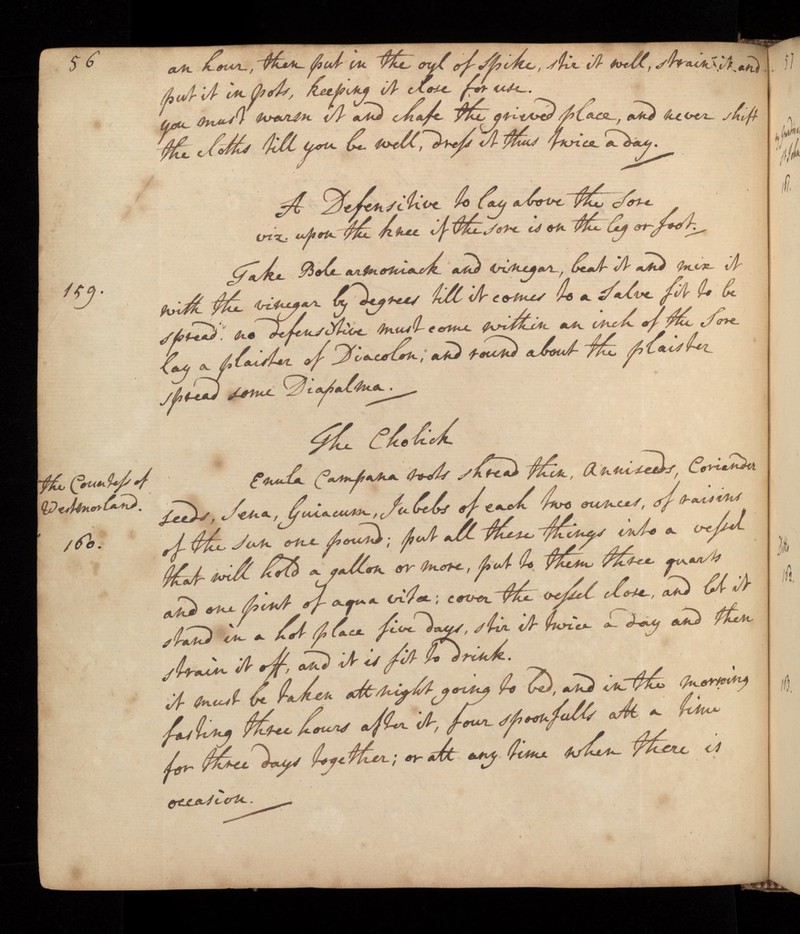 56
an hour, then put in the oyl of Spike, stir it well, strain it and
put it in pots, keeping it close for use.
you must warm it and chafe the grieved place, and never shift
the cloths till you be well, dress it thus twice a day.
A Defensitive to lay above the Sore
viz. upon the knee if the sore is on the leg or foot.
159.
Take Bole armoniack and vinegar, beat it and mix it
with the vinegar by degrees till it comes to a Salve fit to be
spread: no defensitive must come within an inch of the Sore
lay a plaister of Diacolon; and round about the plaister
spread some Diapalma.
The Cholick
the Countess of
Westmorland.
160.
Enula Campana roots shread thin, Anniseeds, Coriander
seeds, Sena, Guiacum, Jubebs of each two ounces, of raisins
of the sun one pound; put all these things into a vessel
that will hold a gallon or more, put to them three quarts
and one pint of aqua vitæ; cover the vessel close, and let it
stand in a hot place five days, stir it twice a day and then
strain it off, and it is fit to drink.
it must be taken att night going to bed, and in the morning
fasting three hours after it, four spoonfulls att a time
for three days together; or att any time when there is
occasion.
57
161.
Ditto
162.
163.